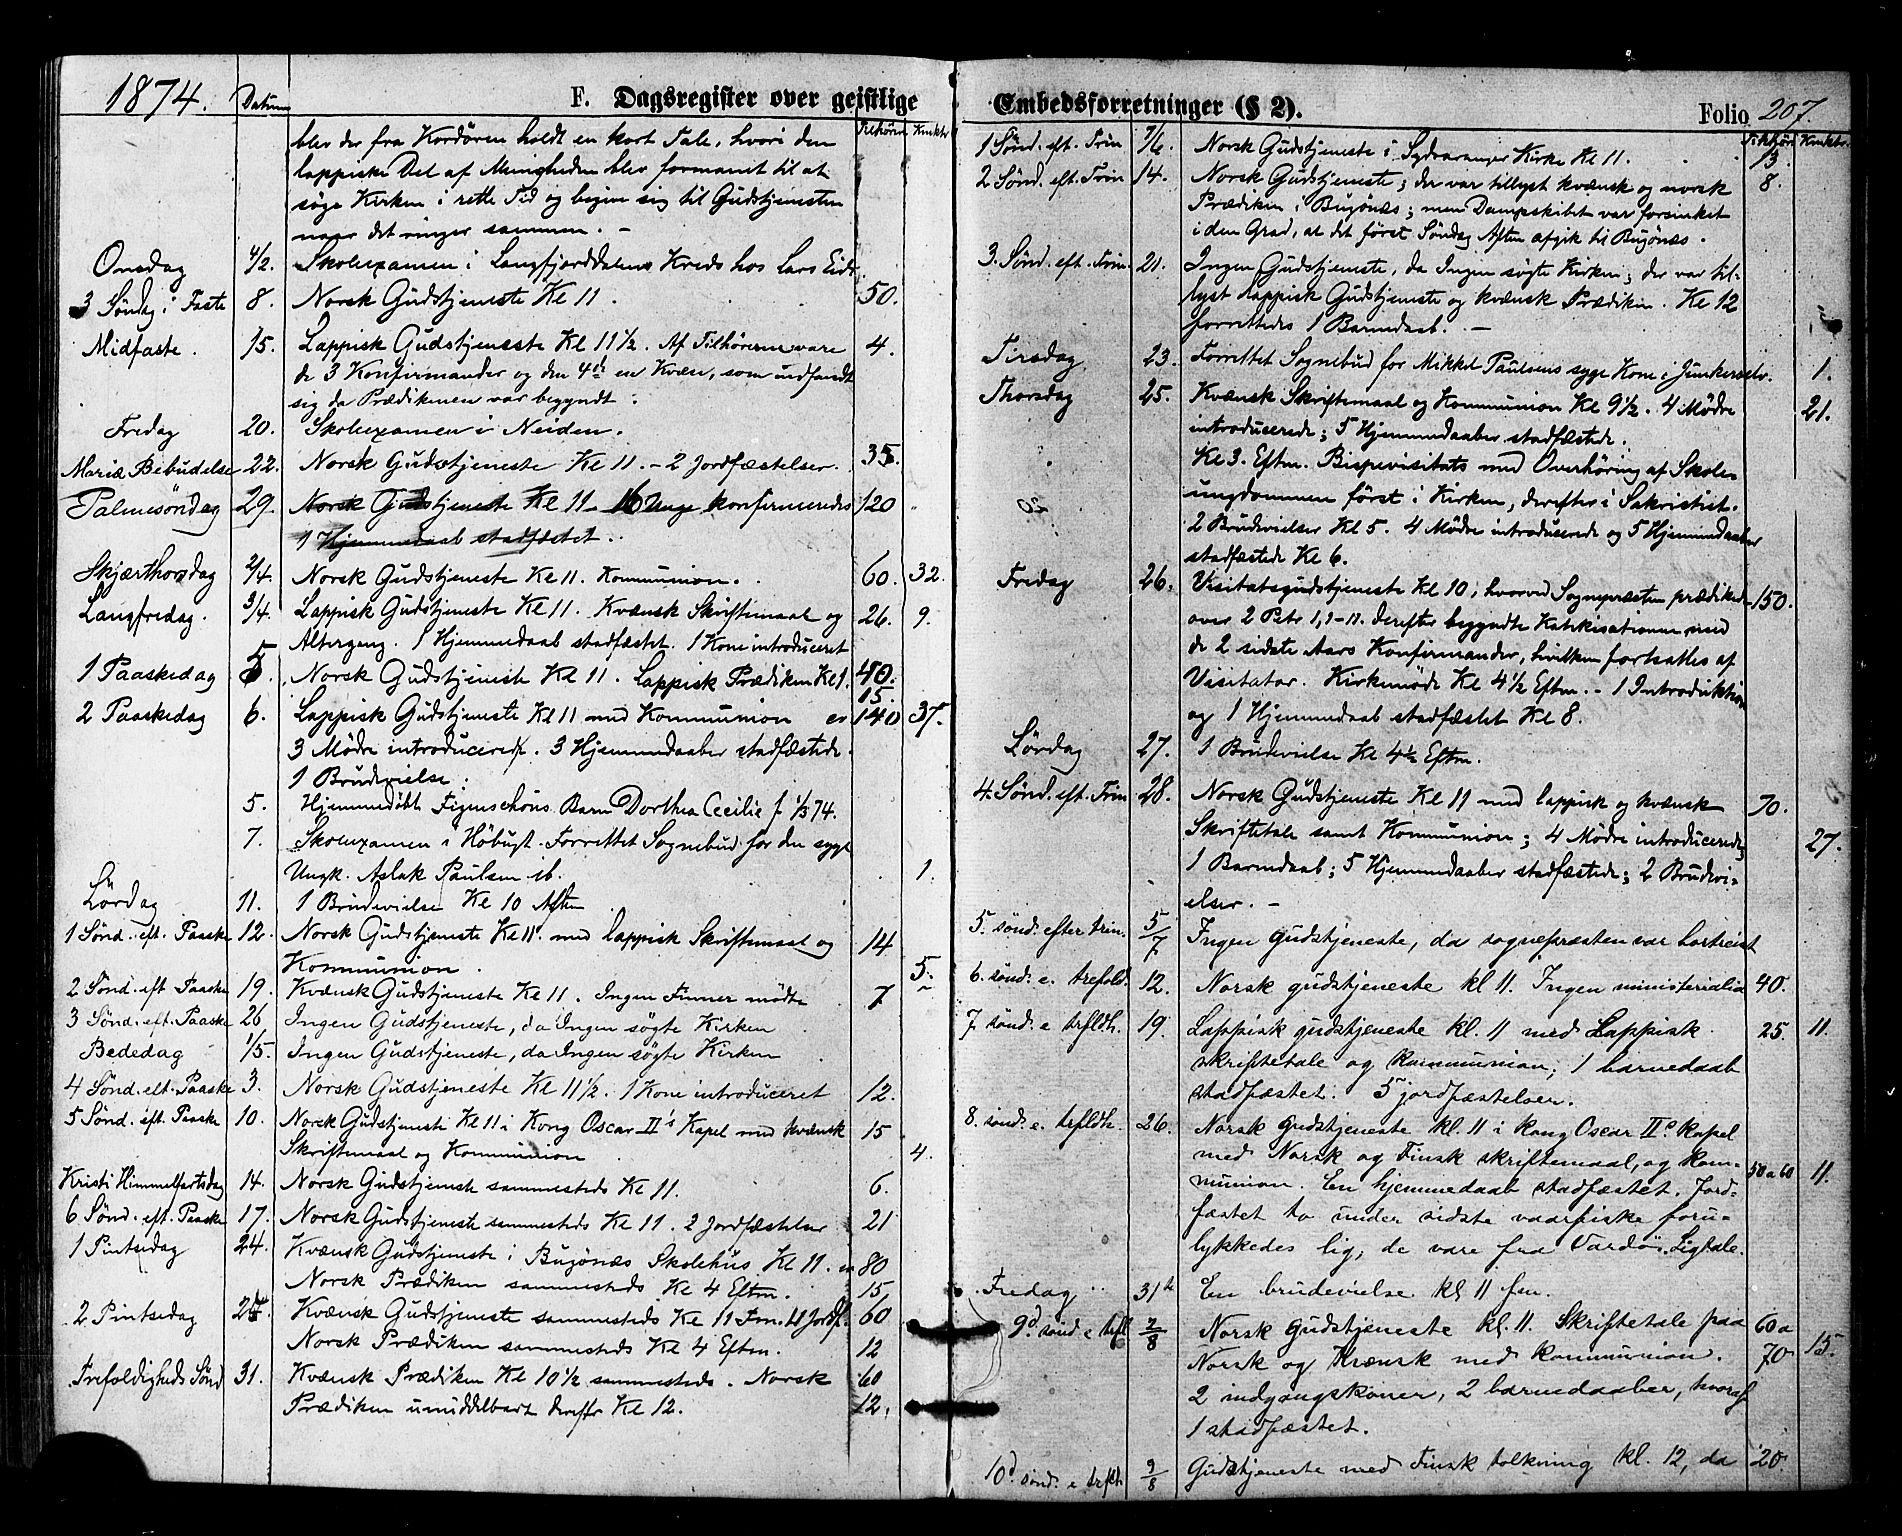 1874.
Datum
F. Dagsregister over geistlige
Tilhörer Kmktr
blev der fra Kordören holdt en kort Tale, hvori den
lappiske Del af Menigheden blev formanet til at
söge Kirken i rette Tid og begive sig til Gudstjenesten
naar det ringer sammen. –
Onsdag 4/2. Skoleexamen i Langfjorddalens Kreds hos Lars Eide.
3 Söndag i Faste 8. Norsk Gudstjeneste Kl 11. 50.
Midfaste. 15. Lappisk Gudstjeneste Kl 11½. Af Tilhörerne vare 4.
de 3 Konfirmander og den 4de en Kvæn, som indfandt
sig da Prædikenen var begyndt.
Fredag 20. Skoleexamen i Neiden.
Mariæ Bebudelse 22. Norsk Gudstjeneste Kl 11. – 2 Jordfæstelser. 35.
Palmesöndag 29. Norsk Gudstjeneste Kl 11 – 16 Unge konfirmeredes 120 "
1 Hjemmedaab stadfæstet.
Skjærthorsdag 2/4. Norsk Gudstjeneste Kl 11. Kommunion. 60. 32.
Langfredag. 3/4. Lappisk Gudstjeneste Kl 11. Kvænsk Skriftemaal og 26. 9.
Altergang. 1 Hjemmedaab stadfæstet. 1 Kone introduceret
1 Paaskedag 5. Norsk Gudstjeneste Kl 11. Lappisk Prædiken Kl 1. 40.
15.
2 Paaskedag 6. Lappisk Gudstjeneste Kl 11 med Kommunion cr 140 37.
3 Mödre introducerede. 3 Hjemmedaaber stadfæstede.
1 Brudevielse.
5. Hjemmedöbt Figenschous Barn Dorthea Cecilie f 1/3 74.
7. Skoleexamen i Höbugt. Forrettet Sognebud for den syge
Ungk. Aslak Paulsen ib. 1.
Lördag 11. 1 Brudevielse Kl 10 Aften
1 Sönd. eft. Paaske 12. Norsk Gudstjeneste Kl 11. med lappisk Skriftemaal og 14
Kommunion. 5.
2 Sönd. eft Paaske 19. Kvænsk Gudstjeneste Kl 11. Ingen Finner mödte 7 "
3 Sönd. eft. Paaske 26 Ingen Gudstjeneste, da Ingen sögte Kirken
Bededag 1/5. Ingen Gudstjeneste, da Ingen sögte Kirken
4 Sönd. eft. Paaske 3. Norsk Gudstjeneste Kl 11½. 1 Kone introduceret 12.
5 Sönd. eft. Paaske 10. Norsk Gudstjeneste Kl 11 i Kong Oscar II's Kapel med kvænsk 15
Skriftemaal og Kommunion 4.
Kristi Himmelfartsdag 14. Norsk Gudstjeneste sammesteds Kl 11. 6.
6 Sönd. eft. Paaske 17. Norsk Gudstjeneste sammesteds Kl 11. 2 Jordfæstelser 21
1 Pintsedag 24. Kvænsk Gudstjeneste i Bugönæs Skolehus Kl 11. cr 80
Norsk Prædiken sammesteds Kl 4 Eftm. 15
2 Pintsedag 25 Kvænsk Gudstjeneste sammesteds Kl 11 Fm. 4 Jordf. 60
Norsk Prædiken sammesteds Kl 4 Eftm. 12
Trefoldigheds Sönd 31. Kvænsk Prædiken Kl 10½ sammesteds. Norsk 60
Prædiken umiddelbart derefter Kl 12. 12.
Embedsforretninger (§ 2).
Folio 207.
Tilhörer Kmktr.
1 Sönd. eft. Trin 7/6. Norsk Gudstjeneste i Sydvaranger Kirke Kl 11. 13.
2 Sönd. eft. Trin 14. Norsk Gudstjeneste; der var tillyst kvænsk og norsk 8.
Prædiken i Bugönæs; men Dampskibet var forsinket
i den Grad, at det först Söndag Aften afgik til Bugönæs.
3. Sönd. eft. Trin. 21. Ingen Gudstjeneste, da Ingen sögte Kirken; der var til-
lyst lappisk Gudstjeneste og kvænsk Prædiken. Kl 12
forrettedes 1 Barnedaab. –
Tirsdag 23. Forrettet Sognebud for Mikkel Paulsens syge Kone i Junkerselv. 1.
Thorsdag 25. Kvænsk Skriftemaal og Kommunion Kl 9½. 4 Mödre 21.
introducerede; 5 Hjemmedaaber stadfæstede.
Kl 3. Eftm. Bispevisitats med Overhöring af Skole-
ungdommen först i Kirken, derefter i Sakristiet.
2 Brudevielser Kl 5. 4 Mödre introducerede og 5 Hjemmedaaber
stadfæstede Kl 6.
Fredag 26. Visitatsgudstjeneste Kl 10; hvorved Sognepræsten prædikede 150.
over 2 Petr 1,1-11. derefter begyndte Katekisationen med
de 2 sidste Aars Konfirmander, hvilken fortsattes af
Visitator. Kirkemöde Kl 4½ Eftm. – 1 Introduktion
og 1 Hjemmedaab stadfæstet Kl 8.
Lördag 27. 1 Brudevielse Kl 4½ Eftm.
4. Sönd. eft. Trin 28. Norsk Gudstjeneste Kl 11 med lappisk og kvænsk 70.
Skriftetale samt Kommunion; 4 Mödre introducerede; 27.
1 Barnedaab; 5 Hjemmedaaber stadfæstede; 2 Brudevi-
elser. –
5. sönd. efter trin. 5/7 Ingen gudstjeneste, da sognepræsten var bortreist
6. sönd. e. trefold. 12. Norsk gudstjeneste kl 11. Ingen ministerialia 40.
7. sönd. e trfldh. 19. Lappisk gudstjeneste kl. 11 med Lappisk 25. 11.
skriftetale og kommunion; 1 barnedaab
stadfæstet. 5 jordfæstelser.
8. sönd. e. trfldh. 26. Norsk gudstjeneste kl. 11 i kong Oscar IIs kapel
med Norsk og Finsk skriftemaal, og kom-
munion. En hjemmedaab stadfæstet. Jord- 50 a 60 11.
fæstet to under sidste vaarfiske foru-
lykkedes lig, de vare fra Vardö. Ligtale.
Fredag 31te En brudevielse kl 11 fm.
9d. sönd. e trfl 2/8 Norsk gudstjeneste kl. 11. Skriftetale paa 60 a
Norsk og Kvænsk med kommunion. 70 15.
2 indgangskoner, 2 barnedaaber, hvoraf
1 stadfæstet.
10d. sönd. e trfl. 9/8 Gudstjeneste med Finsk tolkning kl. 12, da 20.